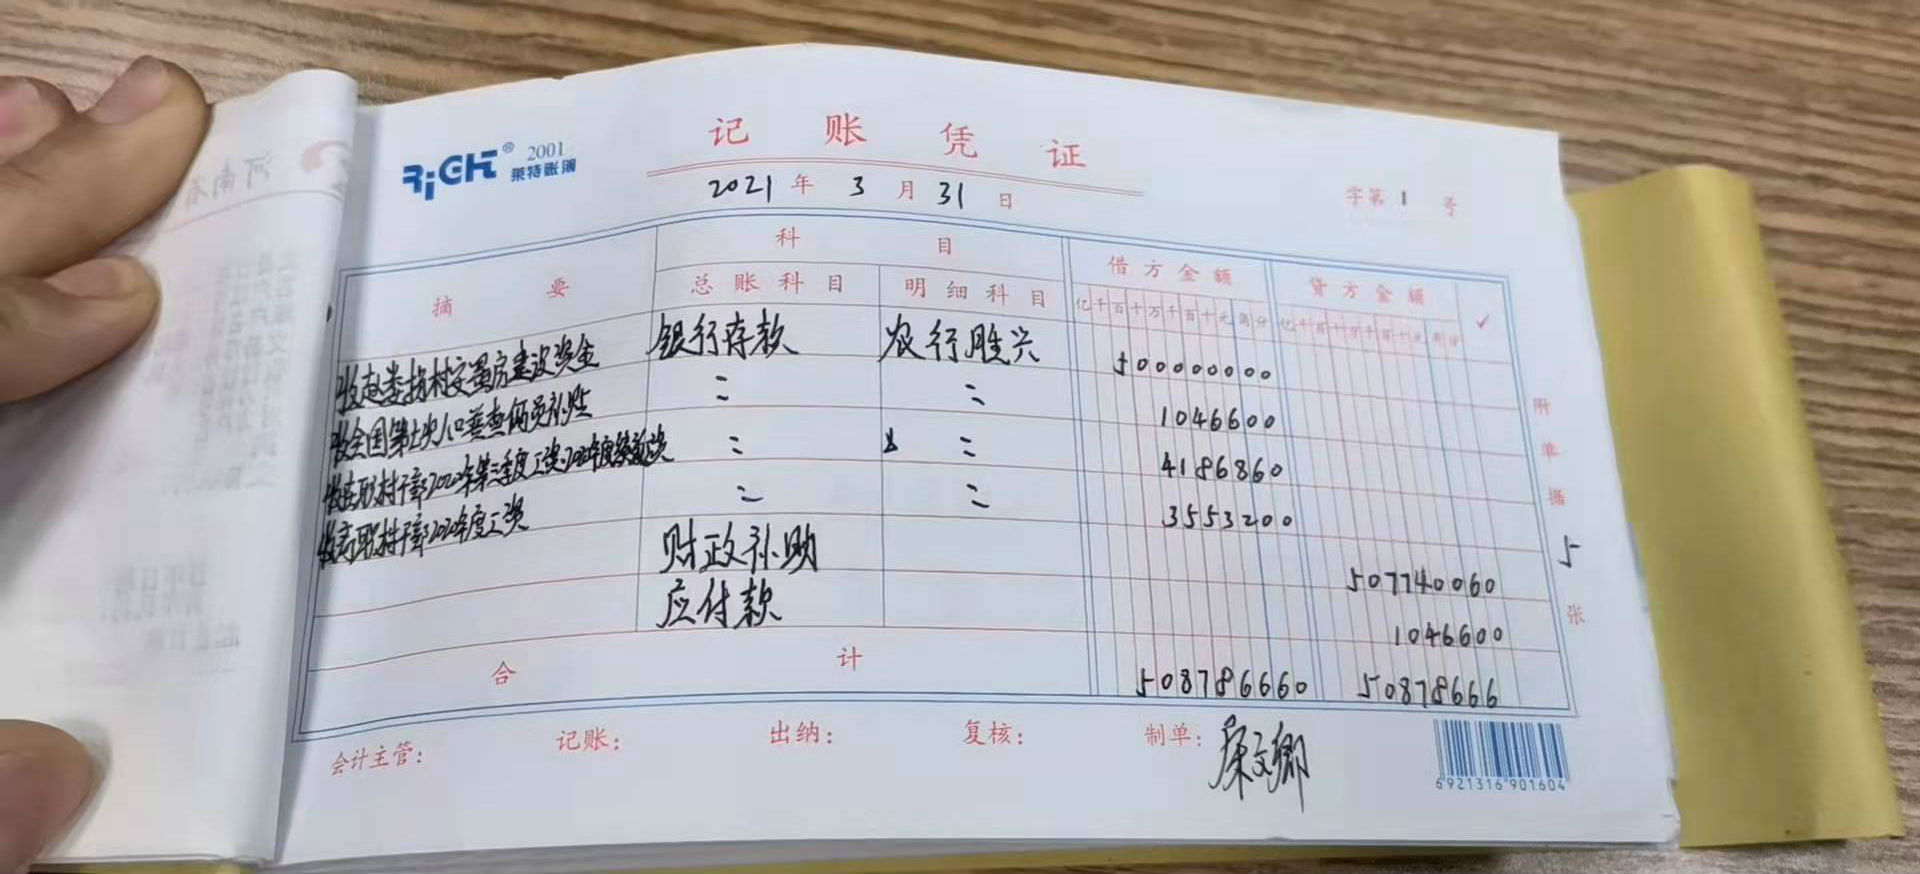 RiGHT® 2001
莱特账簿
记账凭证
2021年3月31日
字第1号
摘要 科目 借方金额 贷方金额 ✓
总账科目 明细科目 亿千百十万千百十元角分 亿千百十万千百十元角分
收赵娄拐村安置房建设资金 银行存款 农行胜兴 500000000
收全国第七次人口普查员补贴 〃 〃 1046600
收在职村干部2020年第三季度工资、2020年度绩效奖 〃 〃 4186860
收离职村干部2020年度工资 〃 〃 3553200
财政补助 507740060
应付款 1046600
合计 508786660 50878666
附单据5张
会计主管: 记账: 出纳: 复核: 制单:
6921316901604
河南省